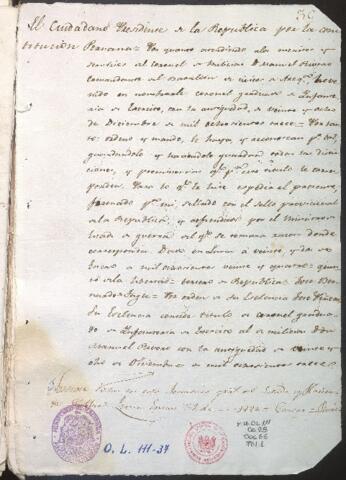 El Ciudadano Presidente de la Republica por la cons
titucion Peruana = Por quanto atendiendo a los meritos y
servicios al Coronel de Milicias D. Manuel
Comandante del Batallon de civicos de
nido en nombrarle coronel graduado de Infante
ria de Exercito, con la antiguedad de veinte y ocho
de Diciembre de mil ochocientos trece = Por tan
to ordeno y mando, le hayan y reconozcan por tal,
guardandole y haciendole guardar todas las distin
ciones, y preeminencias q.e por este titulo le corres
ponden. Para lo q.e le hice expedir el presente,
firmado por mi, sellado con el sello provisional
de la Republica, y refrendado por el Ministro
de guerra del q.e se tomara razon donde
corresponda. Dado en Lima a veinte y dos de
Enero de mil ochocientos veinte y quatro = quar
to de la libertad = tercero de la Republica = Jose Ber
nardo Tagle = Por orden de Su Excelencia
Su Excelencia concede titulo de coronel gradua
do de Infanteria de Exercito al de milicias Don
Manuel con la antiguedad de veinte y
ocho de Diciembre de mil ochocientos trece =
Tomose Razon en esta
Lima Enero de 1824 =
O. L. 111-37